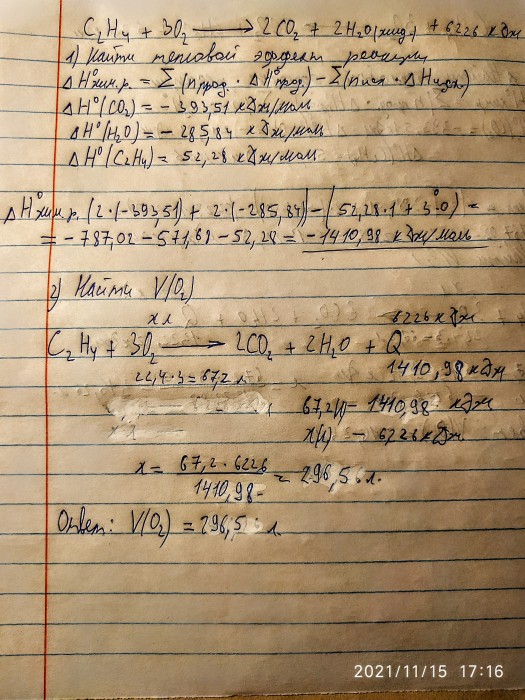 C₂H₄ + 3O₂ ⟶ 2CO₂ + 2H₂O(жид) + 6226 кДж
1) Найти тепловой эффект реакции
ΔH⁰хим.р. = Σ(nпрод. · ΔH⁰прод.) − Σ(nисх · ΔHисх.)
ΔH⁰(CO₂) = − 393,51 кДж/моль
ΔH⁰(H₂O) = − 285,84 кДж/моль
ΔH⁰(C₂H₄) = 52,28 кДж/моль
ΔH⁰хим.р. (2·(−39351) + 2·(−285,84)) − (52,28·1 + 3·0) =
= − 787,02 − 571,68 − 52,28 = − 1410,98 кДж/моль
2) Найти V(O₂)
x л 6226 кДж
C₂H₄ + 3O₂ ⟶ 2CO₂ + 2H₂O + Q
22,4·3 = 67,2 л 1410,98 кДж
67,2(л) − 1410,98 кДж
x(л) − 6226 кДж
x = 67,2 · 6226 / 1410,98 = 296,5 л.
Ответ: V(O₂) = 296,5 л
2021/11/15 17:16